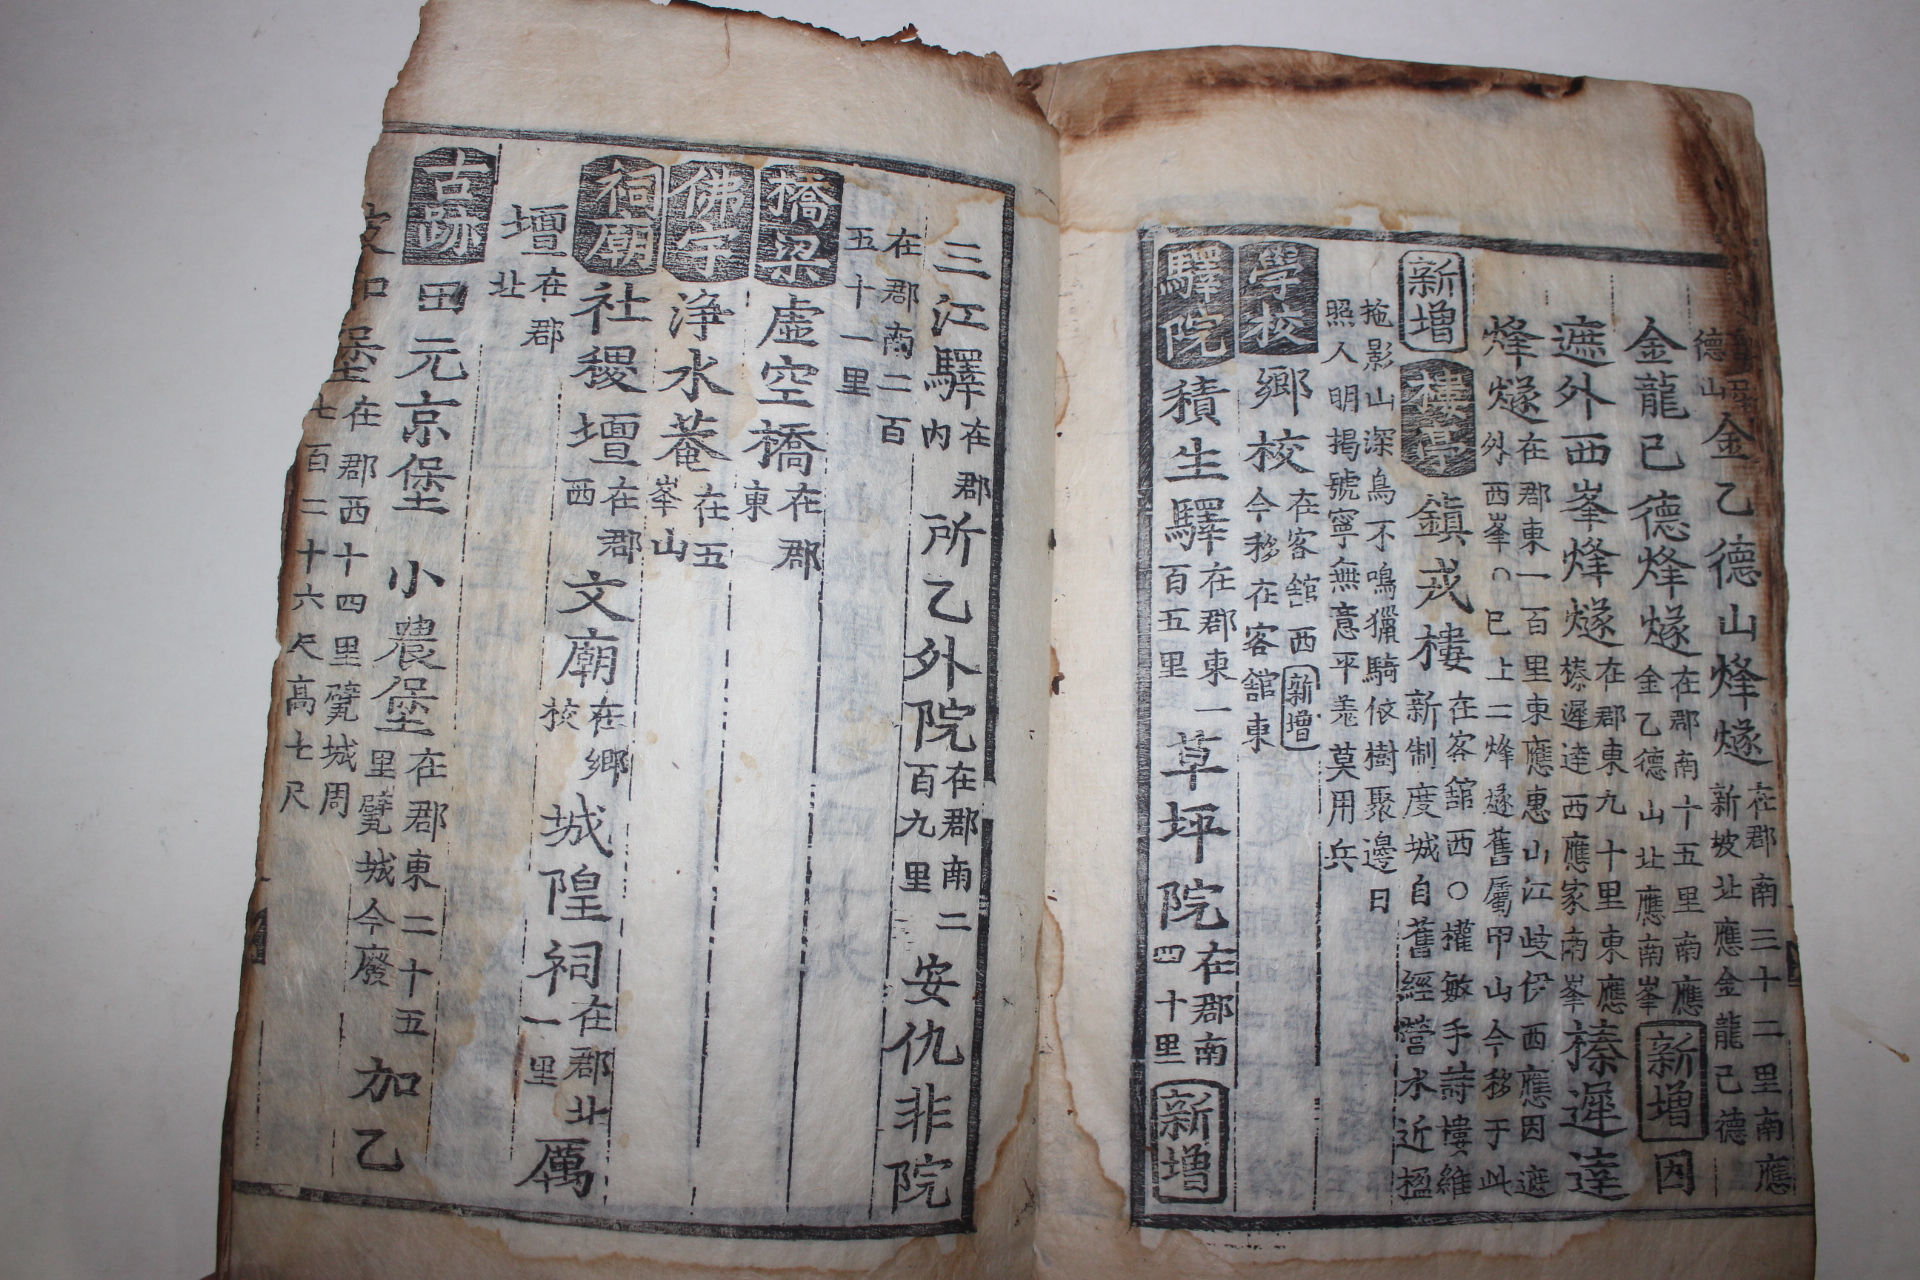 德山金乙德山烽燧在郡南三十二里南應新坡北應金龍己德
金龍已德烽燧在郡南十五里南應金乙德山北應南峯新增因
遮外西峯烽燧在郡東九十里東應榛遲逹西應家南峯榛遲達
烽燧在郡東一百里東應惠山江歧伊西應因遮外西峯○已上二烽燧舊屬甲山今移于此
新增樓亭鎭戎樓在客舘西○權敏手詩樓維新制度城自舊經營水近楹
掩影山深鳥不鳴獵騎依樹聚邊日照人明揭號寧無意平羗莫用兵
學校鄕校在客舘西新增今移在客舘東
驛院積生驛在郡東一百五里草坪院在郡南四十里新增
三江驛在郡内所乙外院在郡南二百九里安仇非院
在郡南二百五十一里
橋梁虛空橋在郡東
佛宇淨水菴在五峯山
祠廟社稷壇在郡西文廟在鄕校城隍祠在郡北一里厲
壇在郡北
古跡田元京堡小農堡在郡東二十五里甓城今廢加乙
坡知堡在郡西十四里甓城周七百二十六尺高七尺